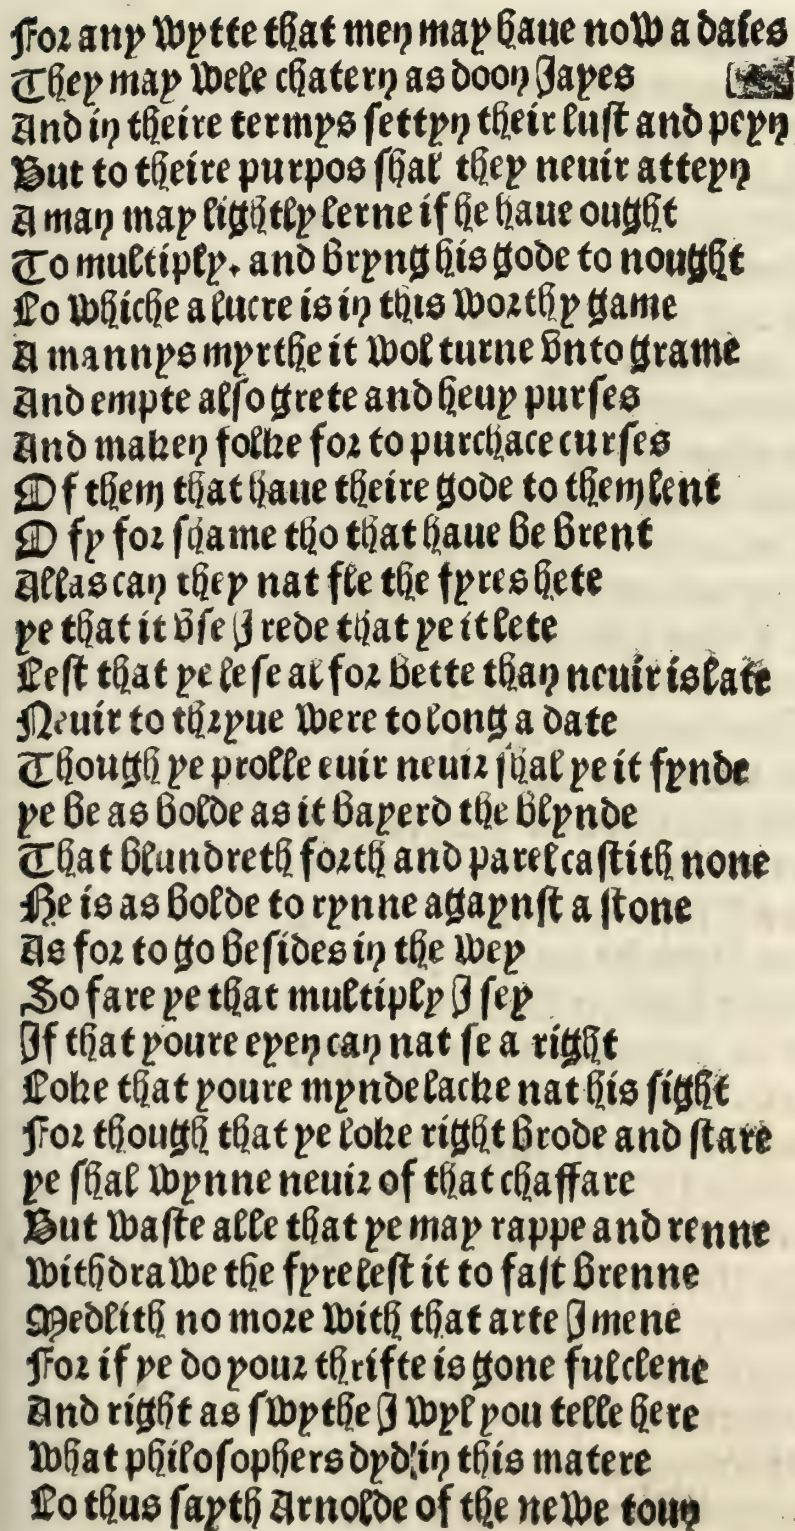 For any wytte that men may haue now a daies
They may wele chatern as doon Jayes
And in theire termys settyn their lust and peyn
But to theire purpos shal they neuir atteyn
A man may lightly lerne if he haue ought
To multiply. and bryng his gode to nought
Lo whiche a lucre is in this worthy game
A mannys myrthe it wol turne vnto grame
And empte also grete and heuy purses
And maken folke for to purchace curses
Of them that haue theire gode to them lent
O fy for shame tho that haue be brent
Allas can they nat fle the fyres hete
ye that it vse J rede that ye it lete
Lest that ye lese al for bette than neuir is late
Neuir to thryue were to long a date
Though ye prolle euir neuir shal ye it fynde
ye be as bolde as it bayerd the blynde
That blundreth forth and parel castith none
He is as bolde to rynne agaynst a stone
As for to go besides in the wey
So fare ye that multiply J sey
Jf that youre eyen can nat se a right
Loke that youre mynde lacke nat his sight
For though that ye loke right brode and stare
ye shal wynne neuir of that chaffare
But waste alle that ye may rappe and renne
withdrawe the fyre lest it to fast brenne
Medlith no more with that arte J mene
For if ye do your thrifte is gone ful clene
And right as swythe J wyl you telle here
what philosophers dyd in this matere
Lo thus sayth Arnolde of the newe toun